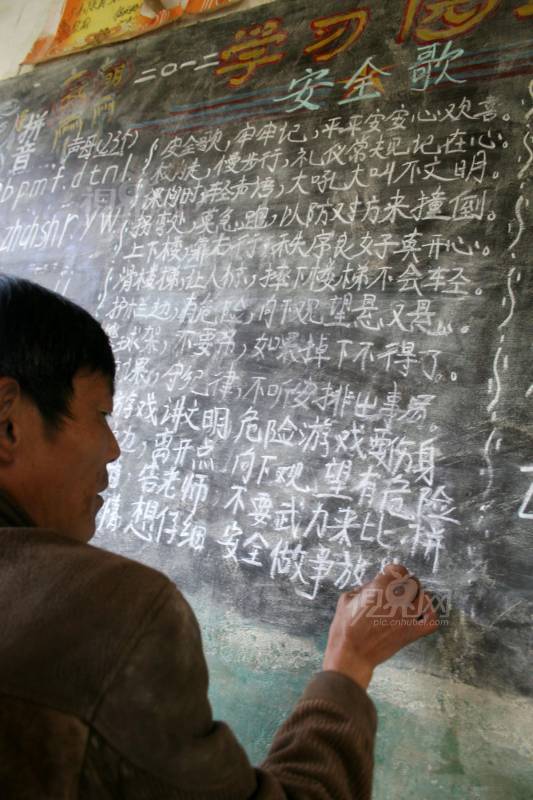 二〇一二 学习园
安全歌
拼音
声母(23个)
bpmf.dtnl
zhchshryw
安全歌,牢牢记,平平安安心欢喜。
慢步行,礼仪常规记在心。
课间时,轻声语,大吼大叫不文明。
拐弯处,莫急跑,以防对方来撞倒。
上下楼,靠右行,秩序良好真开心。
滑楼梯,让人惊,摔下楼梯不会轻。
护栏边,有危险,向下观望悬又悬。
球架,不要吊,如果掉下不得了。
课,守纪律,不听安排出事易。
游戏讲文明 危险游戏要伤身
边,离开点 向下观望有危险
告老师 不要武力来比拼
情想仔细 安全做事放